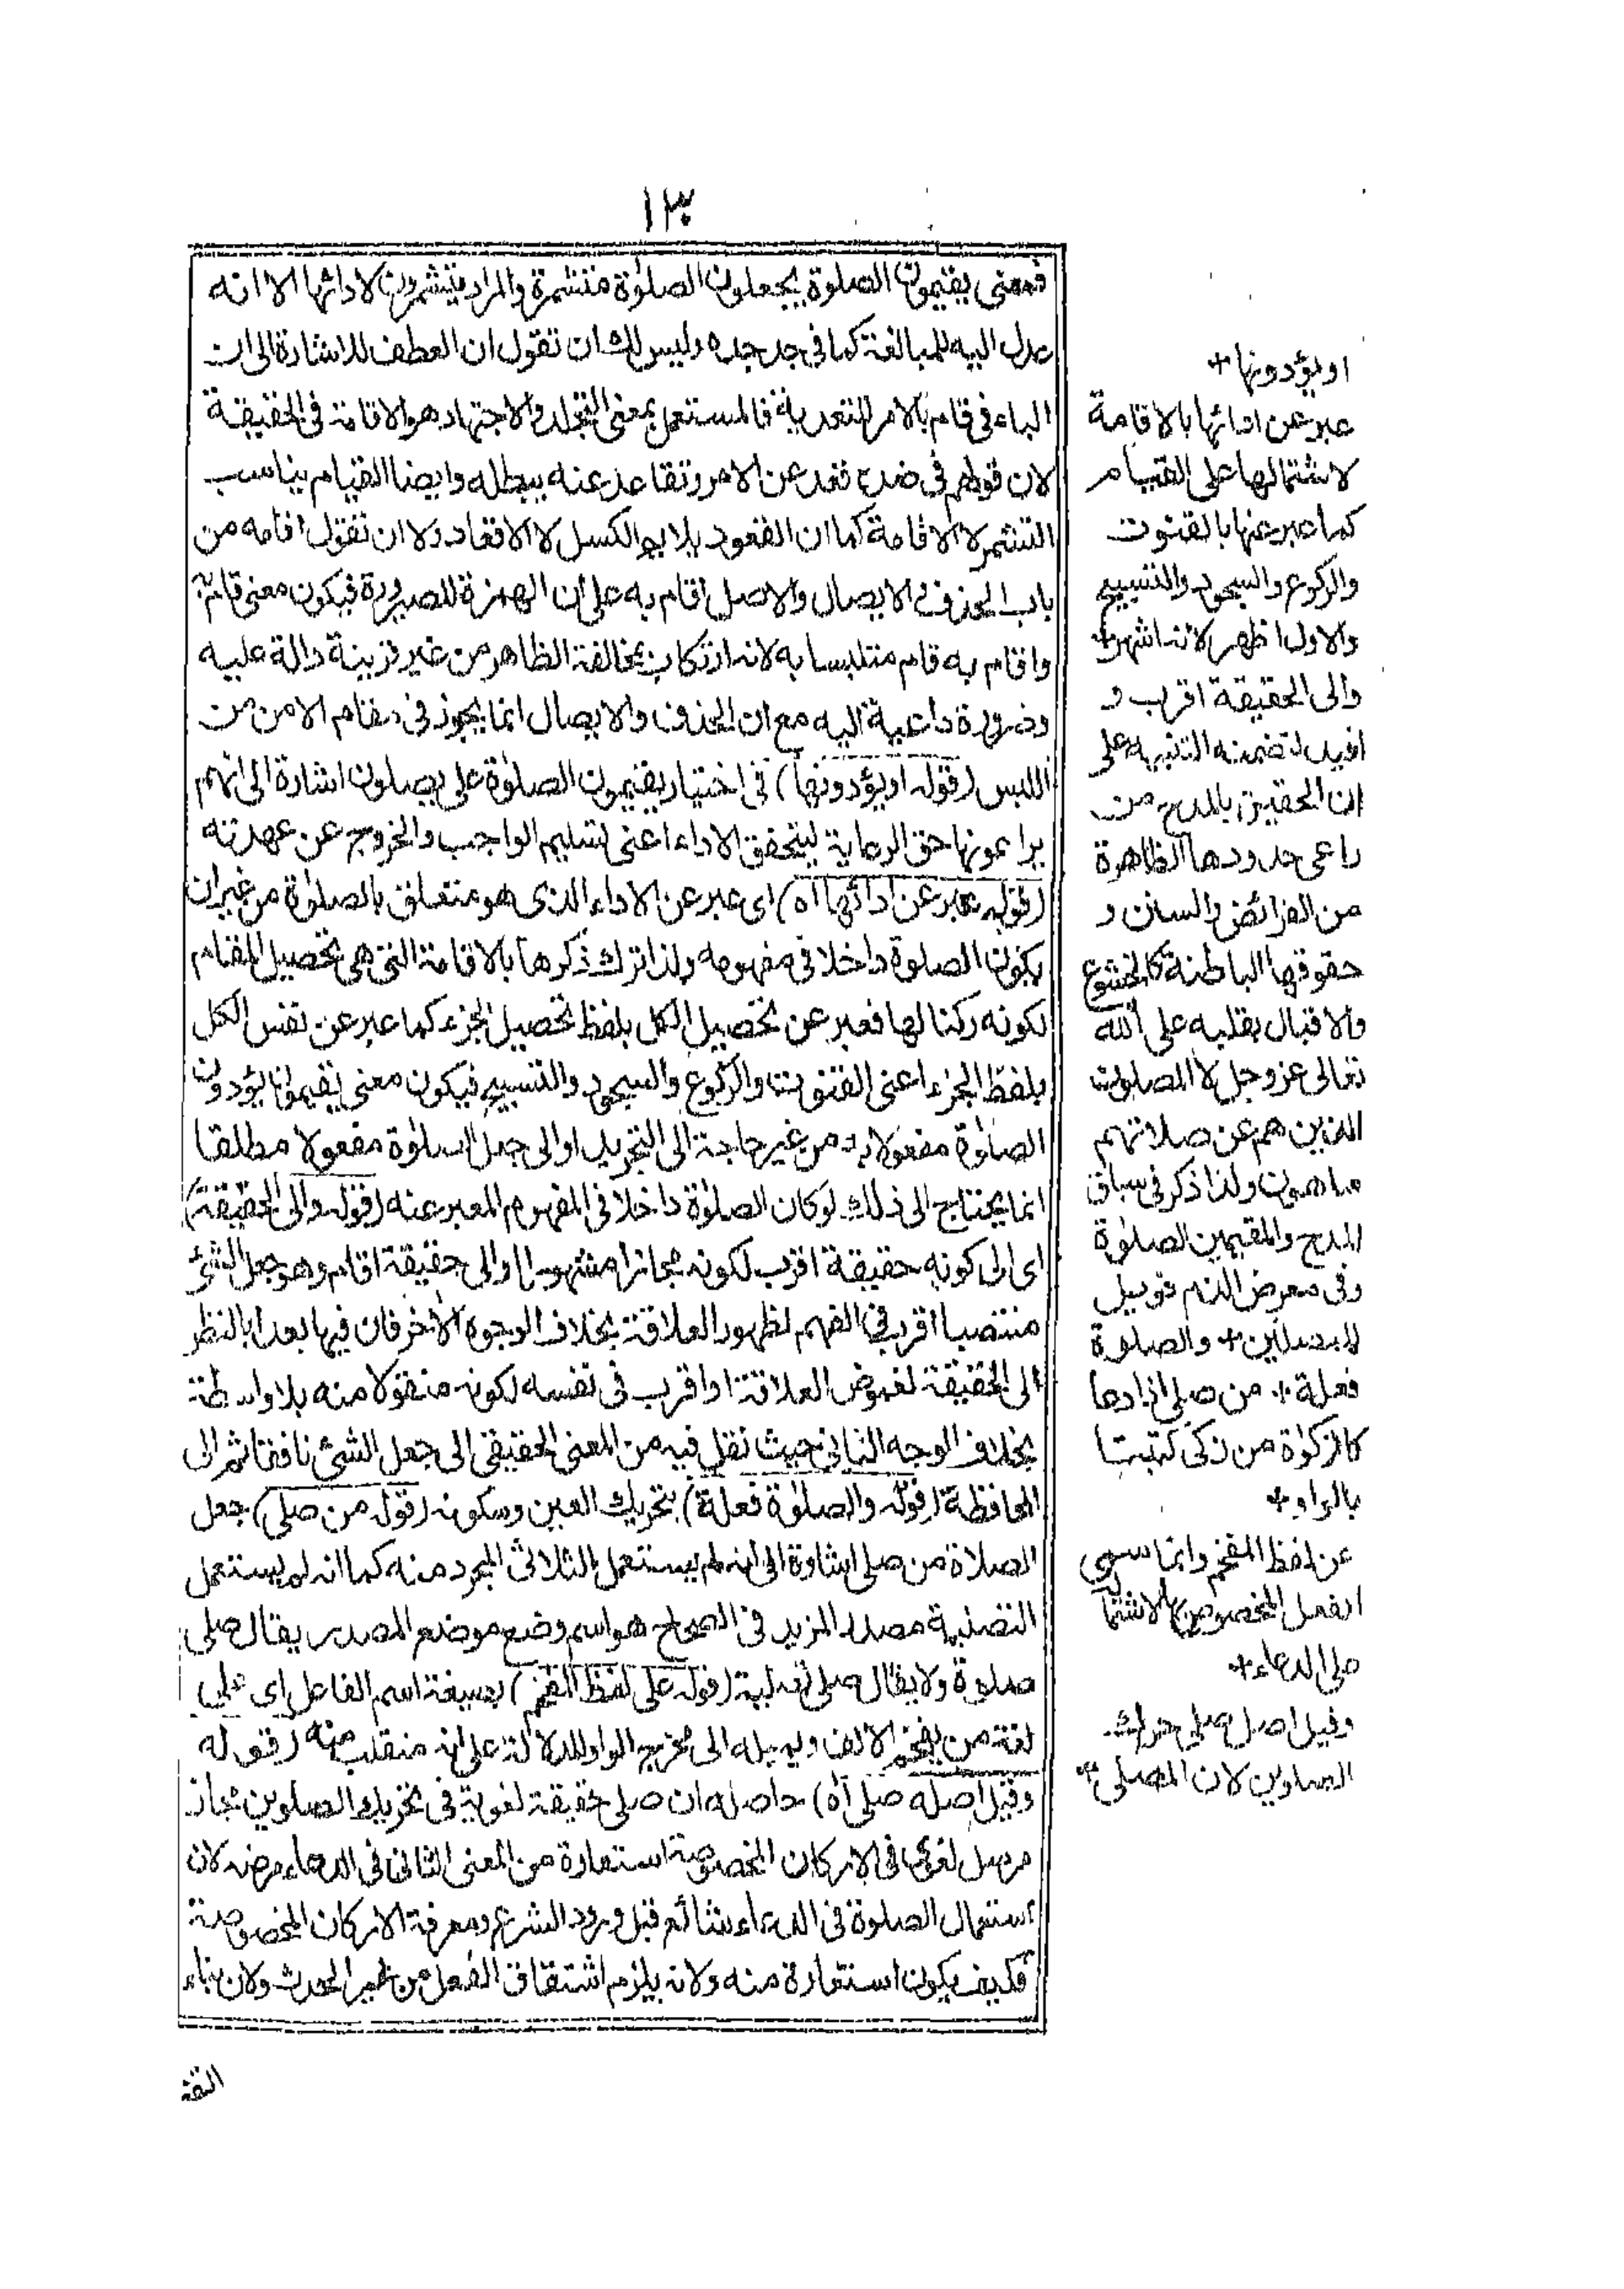 ١٣
فمعنى يقيمون الصلوة يجعلون الصلوٰة متشمرة والمراد يتشمرون لادائها الا انه
عدل اليه للمبالغة كما في جد جده وليس لك ان تقول ان العطف للاشارة الى ان
الباء في قام بالامر للتعدية فالمستعمل بمعنى التجلد والاجتهاد هو الاقامة في الحقيقة
لان قولهم في ضده قعد عن الامر وتقاعد عنه يبطله وايضا القيام يناسب
التشمر لا الاقامة كما ان القعود يلايم الكسل لا الاقعاد ولا ان تقول اقامه من
باب الحذف والايصال والاصل اقام به على ان الهمزة للصيرورة فيكون معنى قام به
واقام به قام متلبسا به لانه ارتكاب مخالفة الظاهر من غير قرينة دالة عليه
وضرورة داعية اليه مع ان الحذف والايصال انما يجوز في مقام الامن من
اللبس (قوله او يؤدونها) في اختيار يقيمون الصلوٰة على يصلون اشارة الى انهم
يراعونها حق الرعاية ليتحقق الاداء اعنى تسليم الواجب والخروج عن عهدته
(قوله عبر عن ادائها اه) اى عبر عن الاداء الذى هو متعلق بالصلوٰة من غير ان
يكون الصلوة داخلا في مفهومه ولذا ترك ذكرها بالاقامة التى هى تحصيل القيام
لكونه ركنا لها فعبر عن تحصيل الكل بلفظ تحصيل الجزء كما عبر عن نفس الكل
بلفظ الجزء اعنى القنوت والركوع والسجود والتسبيح فيكون معنى يقيمون يؤدون
الصلوٰة مفعولا به من غير حاجة الى التجريد او الى جعل الصلوٰة مفعولا مطلقا
انما يحتاج الى ذلك لو كان الصلوٰة داخلا في المفهوم المعبر عنه (قوله والى الحقيقة)
اى الى كونه حقيقة اقرب لكونه مجازا مشهورا او الى حقيقة اقام وهو جعل الشئ
منتصبا اقرب في الفهم لظهور العلاقة بخلاف الوجوه الاخر فان فيها بعدا بالنظر
الى الحقيقة لغموض العلاقة او اقرب في نفسه لكونه منقولا منه بلا واسطة
بخلاف الوجه الثانى حيث نقل فيه من المعنى الحقيقى الى جعل الشئ نافقا ثم الى
المحافظة (قوله والصلوٰة فعلة) بتحريك العين وسكونه (قوله من صلى) جعل
الصلاة من صلى اشارة الى انه لم يستعمل الثلاثى المجرد منه كما انه لم يستعمل
التصلية مصدر المزيد في الصحاح هو اسم وضع موضع المصدر يقال صلى
صلوة ولا يقال صلى تصلية (قوله على لفظ المفخم) بصيغة اسم الفاعل اى على
لغة من يفخم الالف ويميله الى مخرج الواو للدلالة على انه منقلب منه (قوله
وقيل اصله صلى اه) حاصله ان صلى حقيقة لغوية في تحريك الصلوين مجاز
مرسل لغوى في الاركان المخصوصة استعارة من المعنى الثانى في الدعاء مرضه لان
استعمال الصلوة في الدعاء شائع قبل ورود الشرع ومعرفة الاركان المخصوصة
فكيف يكون استعارة منه ولانه يلزم اشتقاق الفعل من غير الحدث ولان بناء
او يؤدونها +
عبر عن ادائها بالاقامة
لاشتمالها على القيام
كما عبر عنها بالقنوت
والركوع والسجود والتسبيح
والاول اظهر لانه اشهر +
والى الحقيقة اقرب و
افيد لتضمنه التنبيه على
ان الحقيق بالمدح من
راعى حدودها الظاهرة
من الفرائض والسنن و
حقوقها الباطنة كالخشوع
والاقبال بقلبه على الله
تعالى عز وجل لا المصلون
الذين هم عن صلاتهم
ساهون ولذا ذكر في سياق
المدح والمقيمين الصلوٰة
وفى معرض الذم فويل
للمصلين + والصلوة
فعلة + من صلى اذا دعا
كالزكوٰة من زكى كتبتا
بالواو +
عن لفظ المفخم وانما سمى
الفعل المخصوص بها لاشتماله
على الدعاء +
وقيل اصل صلى حرك
الصلوين لان المصلى